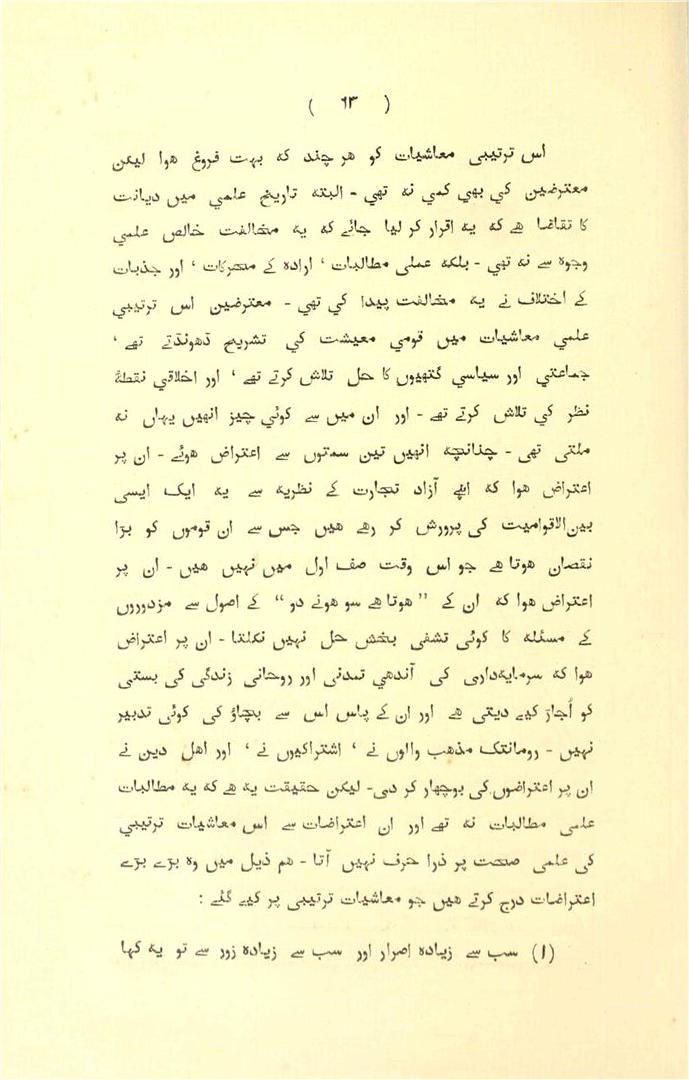 ( ٦٣ )
اس ترتیبی معاشیات کو هر چند که بہت فروغ هوا لیکن
معترضین کي بھي کمي نه تھي - البته تاریخ علمي میں دیانت
کا تقاضا هے که یه اقرار کر لیا جائے که یه مخالفت خالص علمي
وجوه سے نه تھي - بلکه عملي مطالبات ، اراده کے محرکات ، اور جذبات
کے اختلاف نے یه مخالفت پیدا کي تھي - معترضین اس ترتیبي
علمي معاشیات میں قومي معیشت کي تشریح ڈھونڈتے تھے ،
جماعتي اور سیاسي گتھیوں کا حل تلاش کرتے تھے ، اور اخلاقي نقطۂ
نظر کي تلاش کرتے تھے - اور ان میں سے کوئي چیز انھیں یہاں نه
ملتی تھی - چنانچه انھیں تین سمتوں سے اعتراض هوئے - ان پر
اعتراض هوا که اپنے آزاد تجارت کے نظریه سے یه ایک ایسی
بین‌الاقوامیت کی پرورش کر رهے هیں جس سے ان قوموں کو بڑا
نقصان هوتا هے جو اس وقت صف اول میں نہیں هیں - ان پر
اعتراض هوا که ان کے " هوتا هے سو هونے دو " کے اصول سے مزدوروں
کے مسئله کا کوئی تشفی بخش حل نہیں نکلتا - ان پر اعتراض
هوا که سرمایه‌داری کی آندھي تمدنی اور روحانی زندگی کی بستی
کو اُجاڑ کیے دیتی هے اور ان کے پاس اس سے بچاؤ کی کوئی تدبیر
نہیں - رومانٹک مذهب والوں نے ، اشتراکیوں نے ، اور اهل دین نے
ان پر اعتراضوں کی بوچھار کر دی - لیکن حقیقت یه هے که یه مطالبات
علمی مطالبات نه تھے اور ان اعتراضات سے اس معاشیات ترتیبي
کی علمی صحت پر ذرا حرف نہیں آتا - هم ذیل میں وه بڑے بڑے
اعتراضات درج کرتے هیں جو معاشیات ترتیبی پر کیے گئے :
(۱) سب سے زیاده اصرار اور سب سے زیاده زور سے تو یه کہا